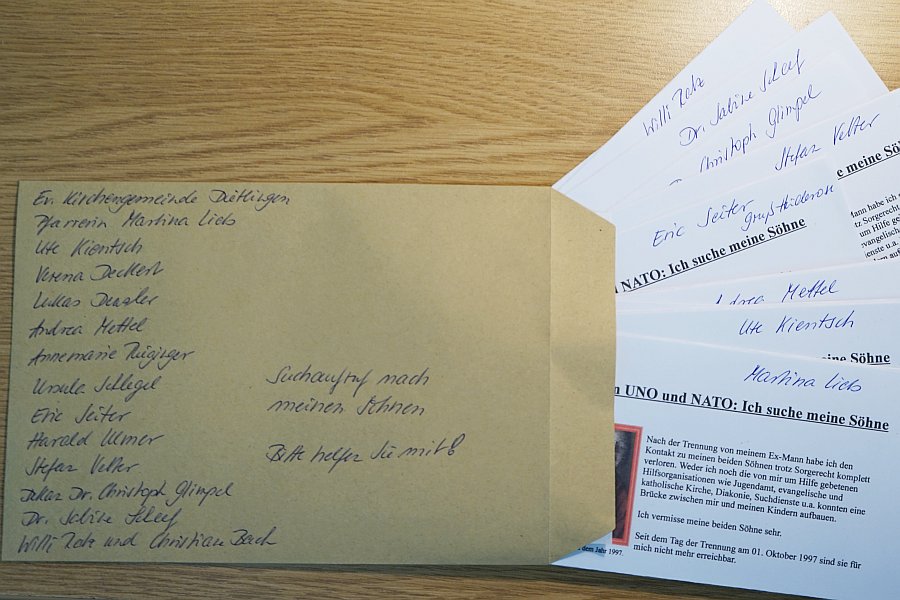 Ev. Kirchengemeinde Dietlingen
Pfarrerin Martina Lieb
Ute Kientsch
Verena Deckert
Lukas Denzler
Andrea Mettel
Annemarie
Ursula Schlegel
Eric Seiter
Harald Ulmer
Stefan Velter
Dekan Dr. Christoph Glimpel
Dr. Sabine
Willi und Christian Bach
Suchaufruf nach
meinen Söhnen
Bitte helfen Sie mit!
Willi
Dr. Sabine
Christoph Glimpel
Stefan Velter
e meine Söh
Eric Seiter
NATO: Ich suche meine Söhne
Andrea Mettel
Ute Kientsch
ine Söhne
Martina Lieb
n UNO und NATO: Ich suche meine Söhne
Nach der Trennung von meinem Ex-Mann habe ich den
Kontakt zu meinen beiden Söhnen trotz Sorgerecht komplett
verloren. Weder ich noch die von mir um Hilfe gebetenen
Hilfsorganisationen wie Jugendamt, evangelische und
katholische Kirche, Diakonie, Suchdienste u.a. konnten eine
Brücke zwischen mir und meinen Kindern aufbauen.
Ich vermisse meine beiden Söhne sehr.
Seit dem Tag der Trennung am 01. Oktober 1997 sind sie für
mich nicht mehr erreichbar.
dem Jahr 1997.